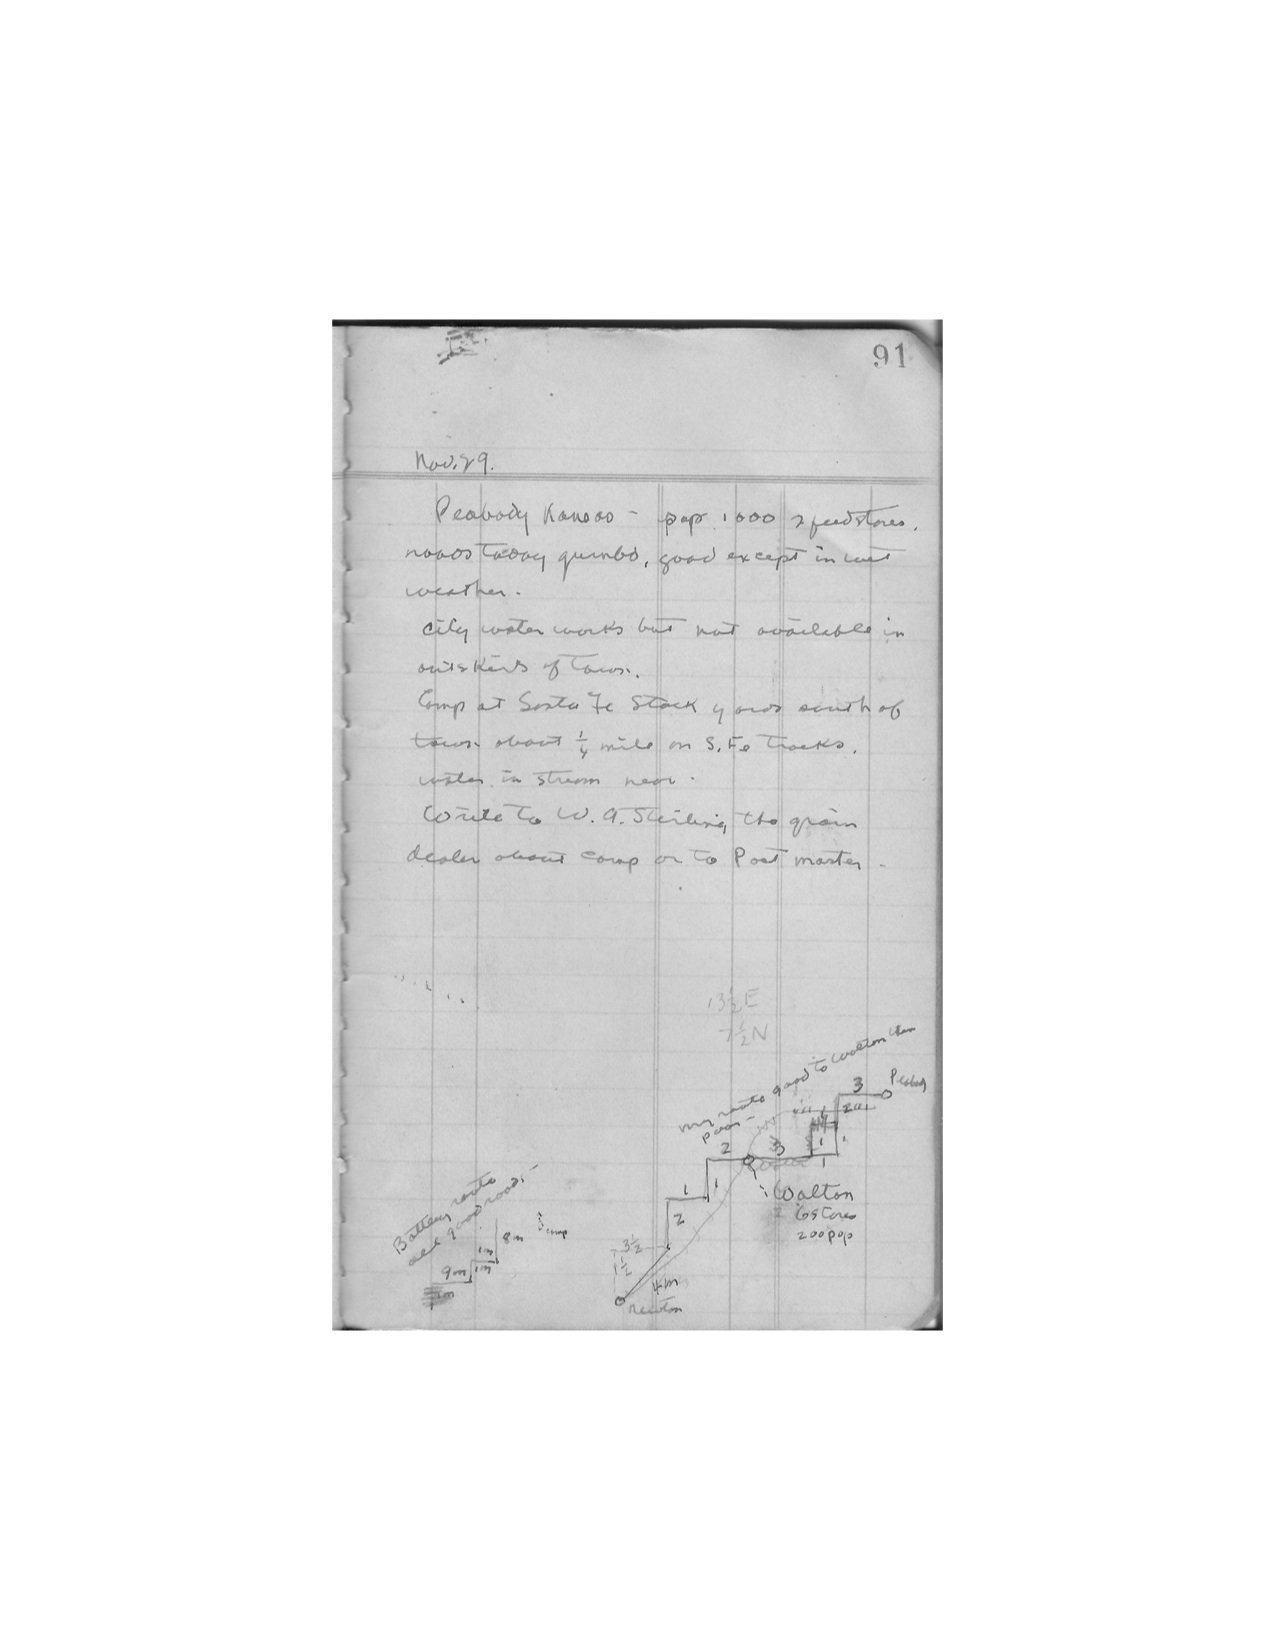 91
Nov. 29.
Peabody Kansas - pop. 1000 2 feedstores.
roads today gumbo, good except in wet
weather.
City water works but not available in
outskirts of town.
Camp at Santa Fe Stock yards south of
town about 1/4 mile on S. Fe tracks.
water in stream near.
Write to W. A. Sterling the grain
dealer about camp or to Post master.
13 1/2 E
7 1/2 N
my route good to Walton then
poor -
3 Peabody
2 3 1
1 1
Walton
stores
200 pop
2
3 1/2
1 1/2
4m
Newton
Battery route
all good road. -
camp
8m
1m
1m
9m